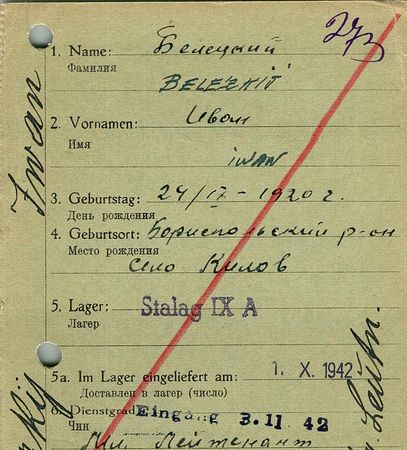 273
1. Name: Белецкий
Фамилия
BELEZKIJ
2. Vornamen: Иван
Имя
IWAN
3. Geburtstag: 24/IV - 1920 г.
День рождения
4. Geburtsort: Бориспольский р-он
Место рождения
село Килов
5. Lager: Stalag IX A
Лагерь
5a. Im Lager eingeliefert am: 1. X. 1942
Доставлен в лагерь (число)
6. Dienstgrad: Eingang 3.11 42
Чин
Мл. Лейтенант
Iwan
Leutn.